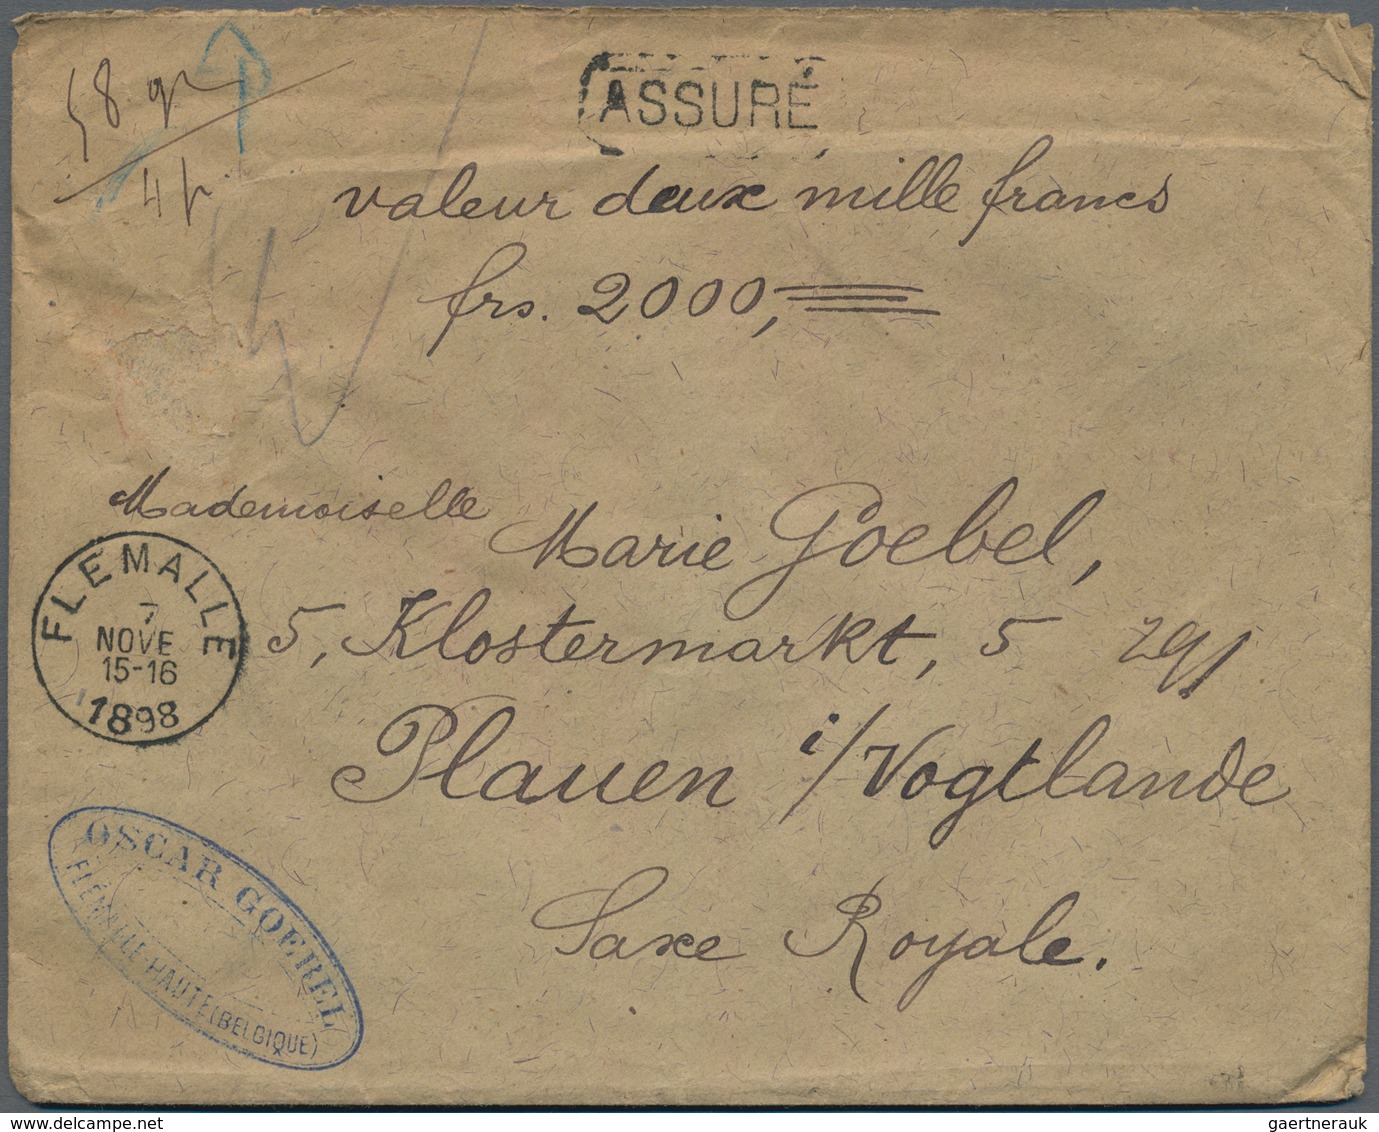 58 gr
4 p.
ASSURÉ
valeur deux mille francs
frs. 2000,
Mademoiselle
Marie Goebel,
5, Klostermarkt, 5
Plauen i/Vogtlande
Saxe Royale.
FLÉMALLE
7
NOVE
15-16
1898
OSCAR GOEBEL
FLÉMALLE-HAUTE (BELGIQUE)
delcampe.net
gaertnerauk